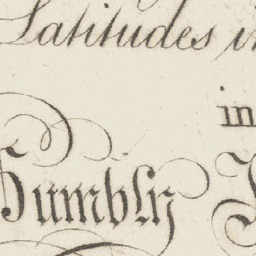 Latitudes in
in
Humbly